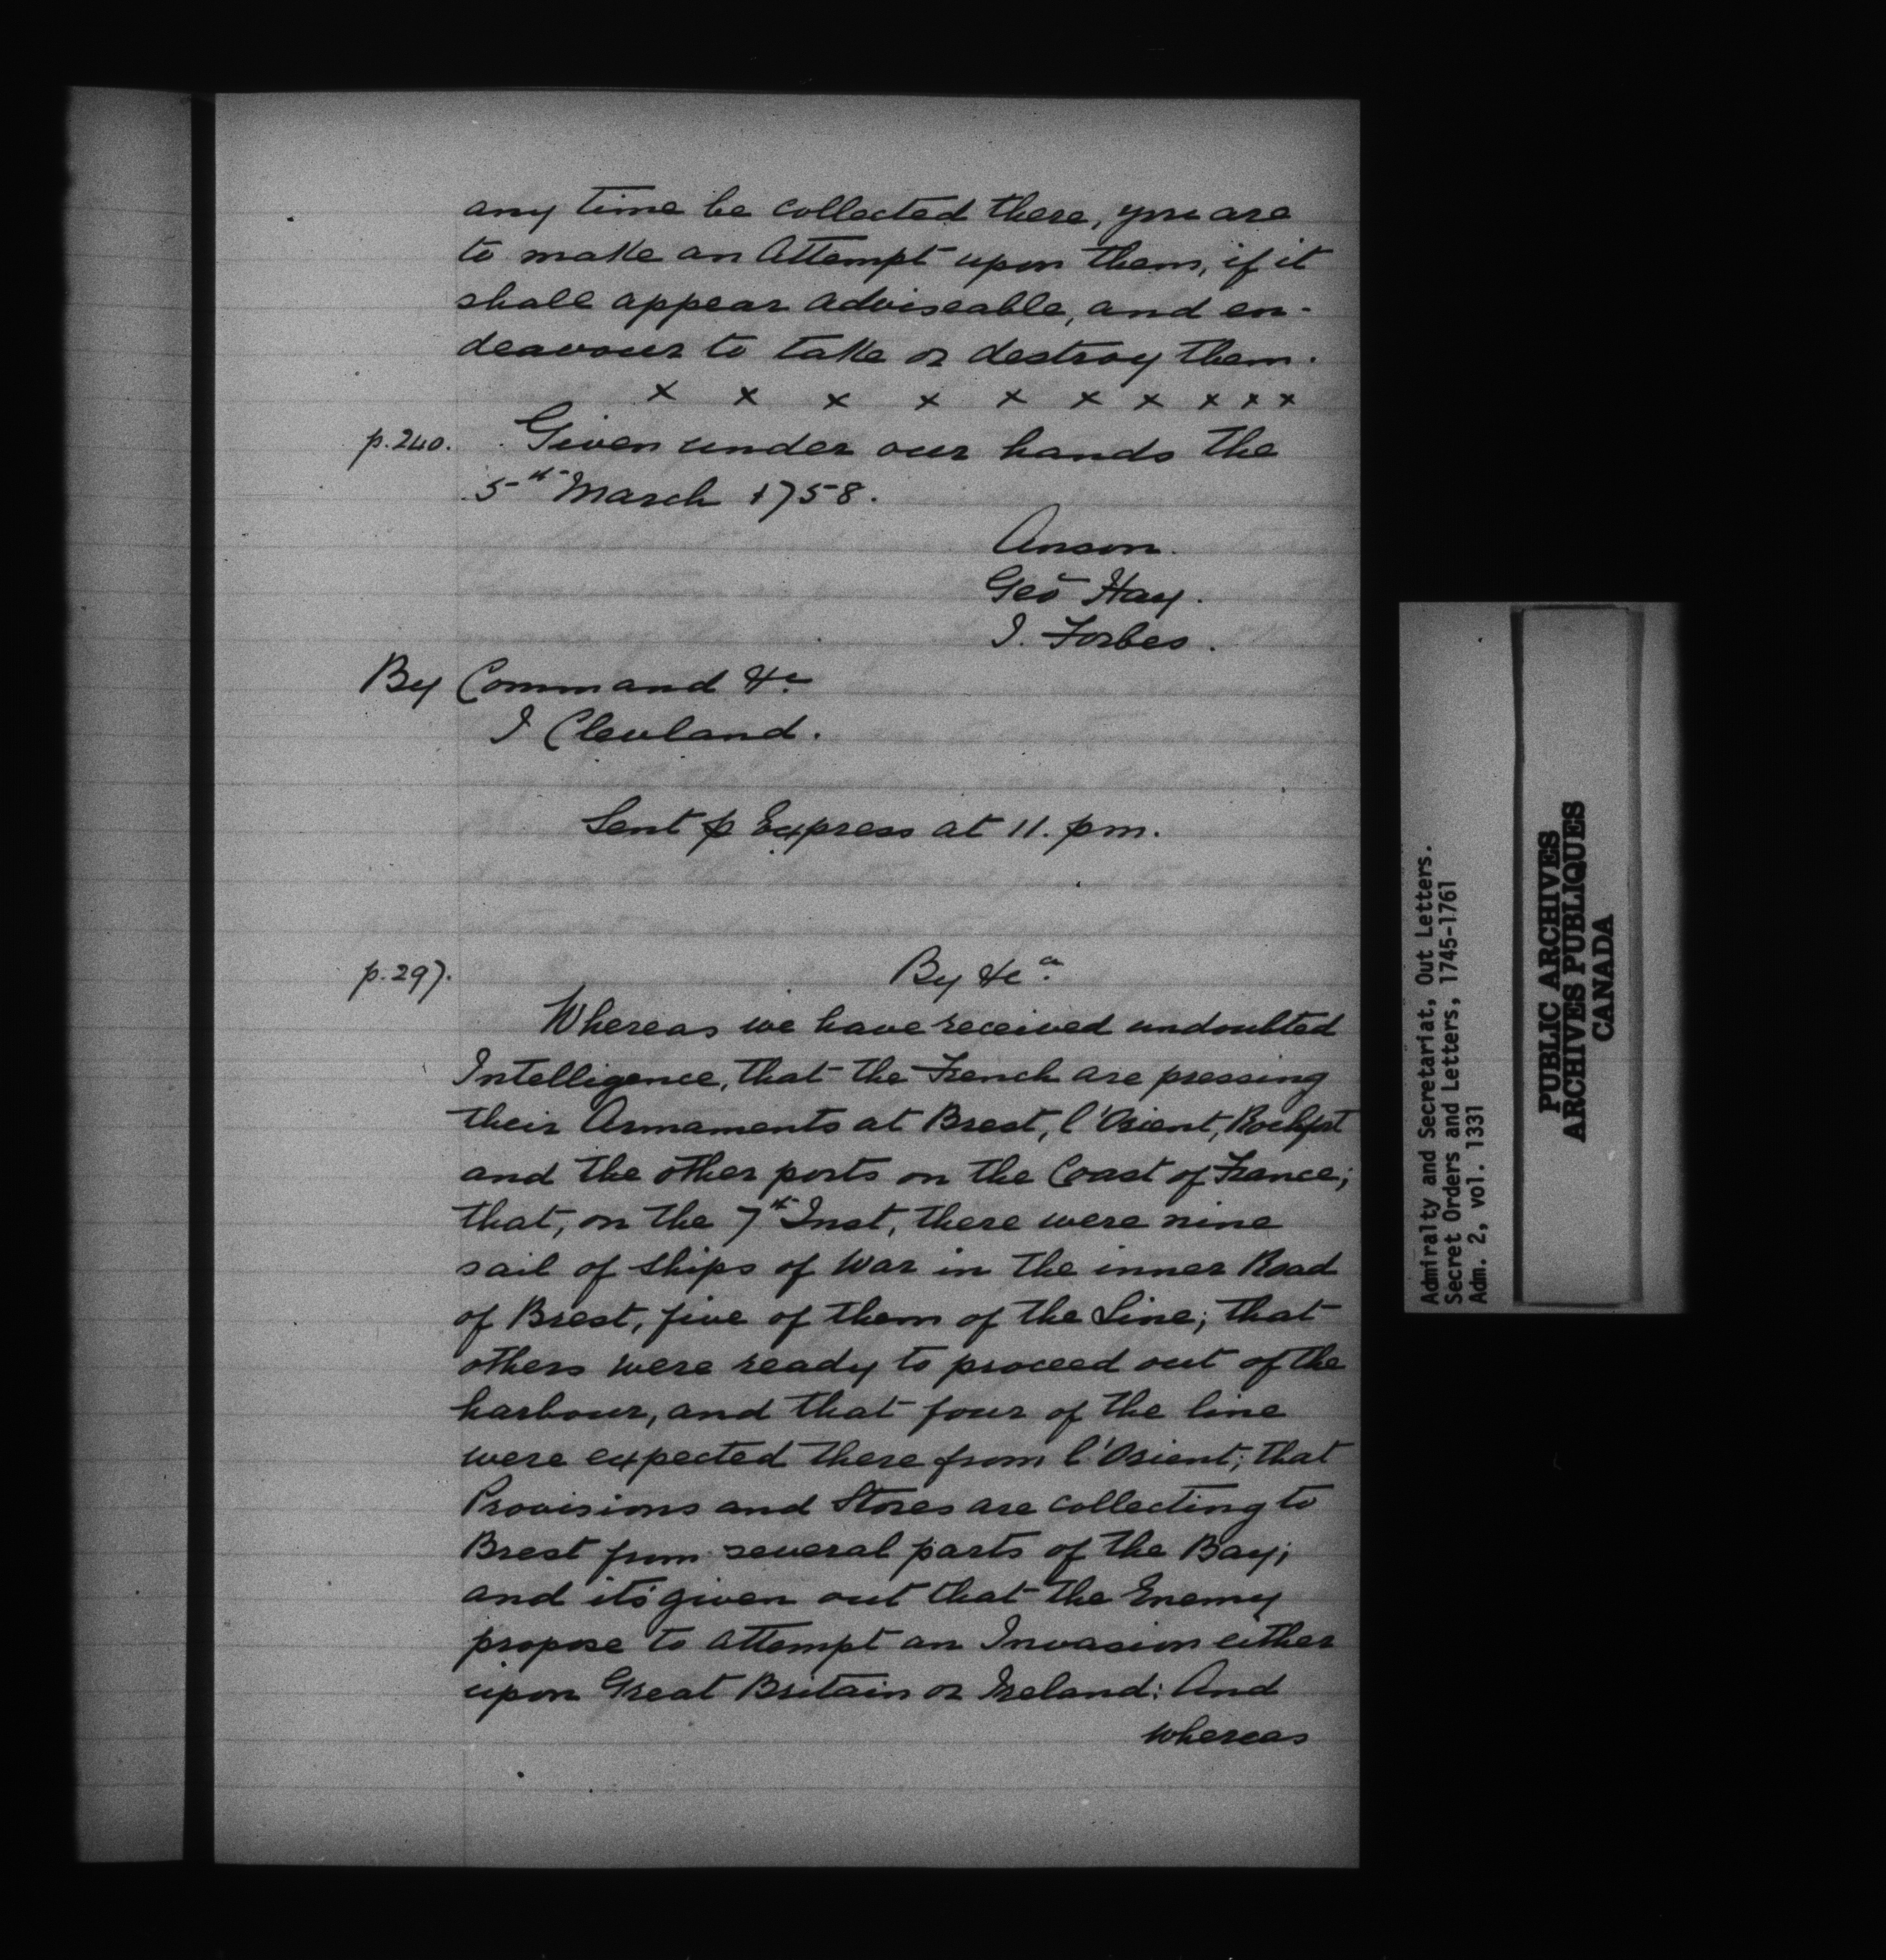 any time be collected there, you are
to make an Attempt upon them, if it
shall appear adviseable, and en-
deavour to take or destroy them.
x x x x x x x x x x
p.240. Given under our hands the
5th March 1758.
Anson.
Geo Hay.
J. Forbes.
By Command &c.
J Clevland.
Sent p Express at 11. pm.
p.297. By &ca.
Whereas we have received undoubted
Intelligence, that the French are pressing
their Armaments at Brest, l'Orient, Rochfort
and the other ports on the Coast of France;
that, on the 7th Inst, there were nine
sail of Ships of War in the inner Road
of Brest, five of them of the Line; that
others were ready to proceed out of the
harbour, and that four of the line
were expected there from l'Orient; that
Provisions and Stores are collecting to
Brest from several parts of the Bay;
and its given out that the Enemy
propose to attempt an Invasion either
upon Great Britain or Ireland: And
whereas
Admiralty and Secretariat, Out Letters.
Secret Orders and Letters, 1745-1761
Adm. 2, vol. 1331
PUBLIC ARCHIVES
ARCHIVES PUBLIQUES
CANADA